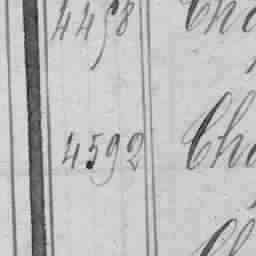 4458 Cha
4592 Cha